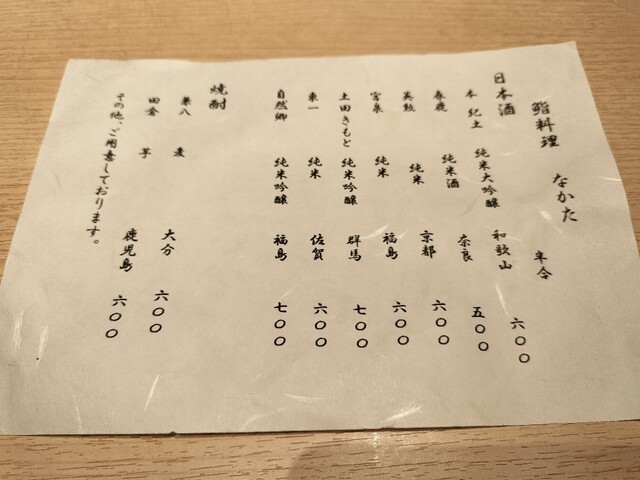 鮨料理 なかた
日本酒 半合
本 紀土 純米大吟醸 和歌山 六〇〇
春鹿 純米酒 奈良 五〇〇
英勲 純米 京都 六〇〇
宮泉 純米 福島 六〇〇
土田きもと 純米吟醸 群馬 七〇〇
東一 純米 佐賀 六〇〇
自然郷 純米吟醸 福島 七〇〇
焼酎
兼八 麦 大分 六〇〇
田倉 芋 鹿児島 六〇〇
その他、ご用意しております。